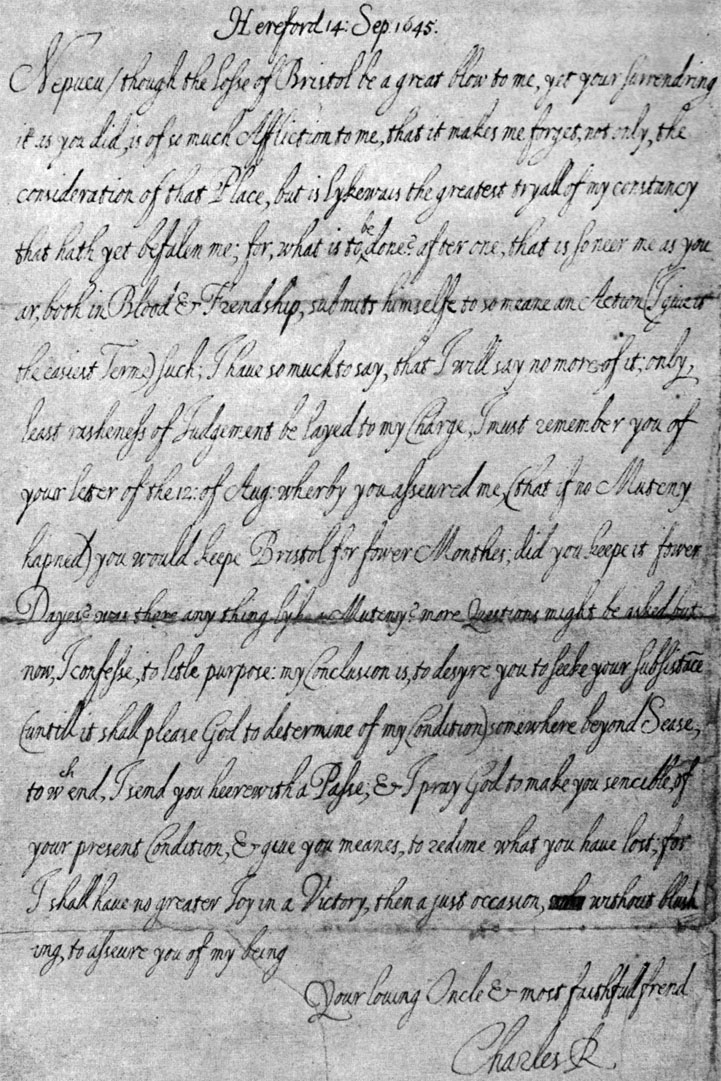 Hereford 14: Sep. 1645.
Nepueu/ though the losse of Bristol be a great blow to me, yet your surrendring
it as you did, is of so much Affliction to me, that it makes me forget, not only, the
consideration of that Place, but is lykewais the greatest tryall of my constancy
that hath yet befalen me; for, what is to be done? after one, that is so neer me as you
ar, both in Blood & Frendship, submits himselfe to so meane an Action (I give it
the easiest Terme) such; I have so much to say, that I will say no more of it; only,
least rasheness of Judgement be layed to my Charge, I must remember you of
your leter of the 12: of Aug: wherby you asseured me, (that if no Muteny
hapned) you would keepe Bristol for fower Monthes; did you keepe it fower
Dayes? was there any thing lyke a Muteny? more Questions might be asked but
now, I confesse, to litle purpose: my Conclusion is, to desyre you to seeke your subsistāce
(untill it shall please God to determine of my Condition) somewhere beyond Sease,
to wch end, I send you heerewith a Passe; & I pray God to make you sencible, of
your present Condition, & give you meanes, to redime what you have lost; for
I shall have no greater Joy in a Victory, then a just occasion, without blush
ing, to asseure you of my being
Your loving Oncle & most faithfull frend
Charles R